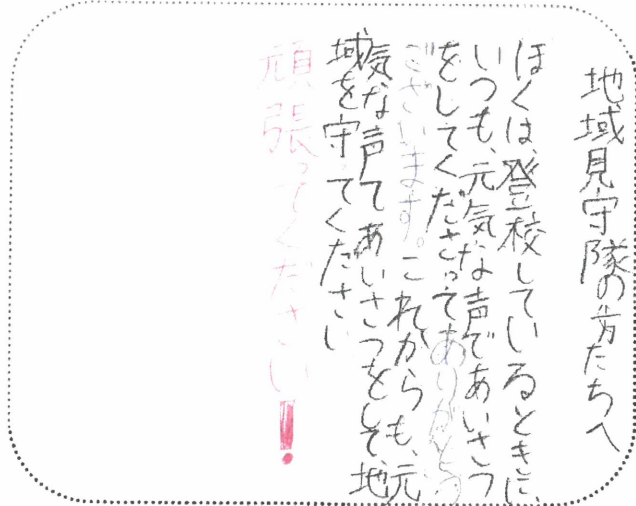 地域見守隊の方たちへ
ぼくは、登校しているときに、
いつも、元気な声であいさつ
をしてくださってありがとう
ございます。これからも、元
気な声であいさつをして、地
域を守ってください
頑張ってください!